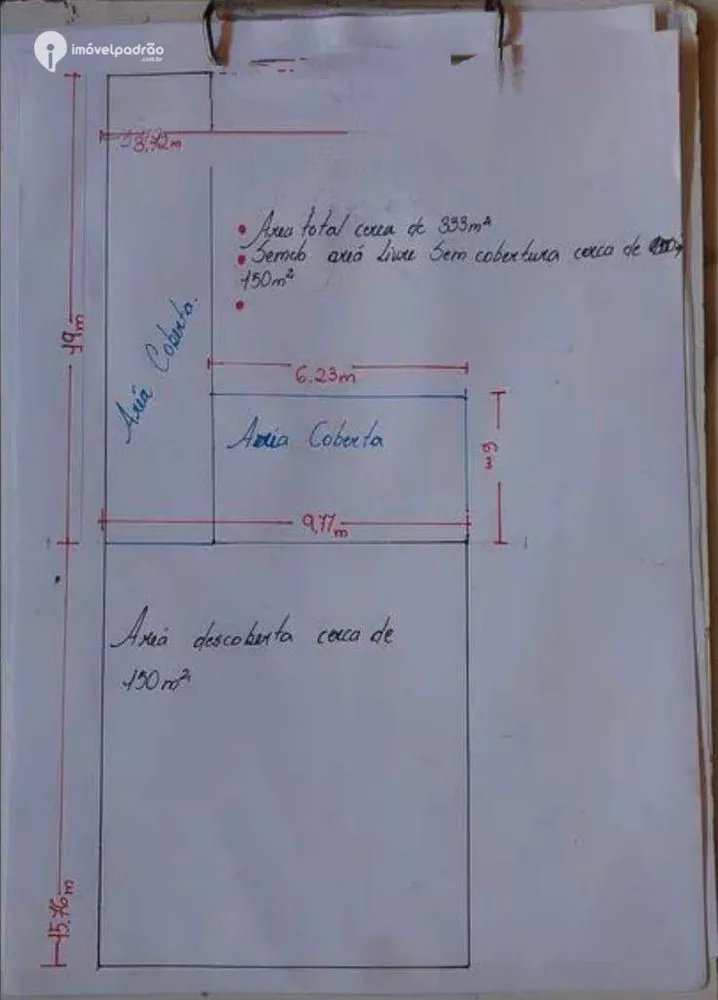 imóvelpadrão
.com.br
3.72m
Area total cerca de 333m²
area Livre Sem cobertura cerca de
150m²
19m
Areá Coberta.
6.23m
Coberta
6m
9,77m
Areá descoberta cerca de
150m²
15.76m